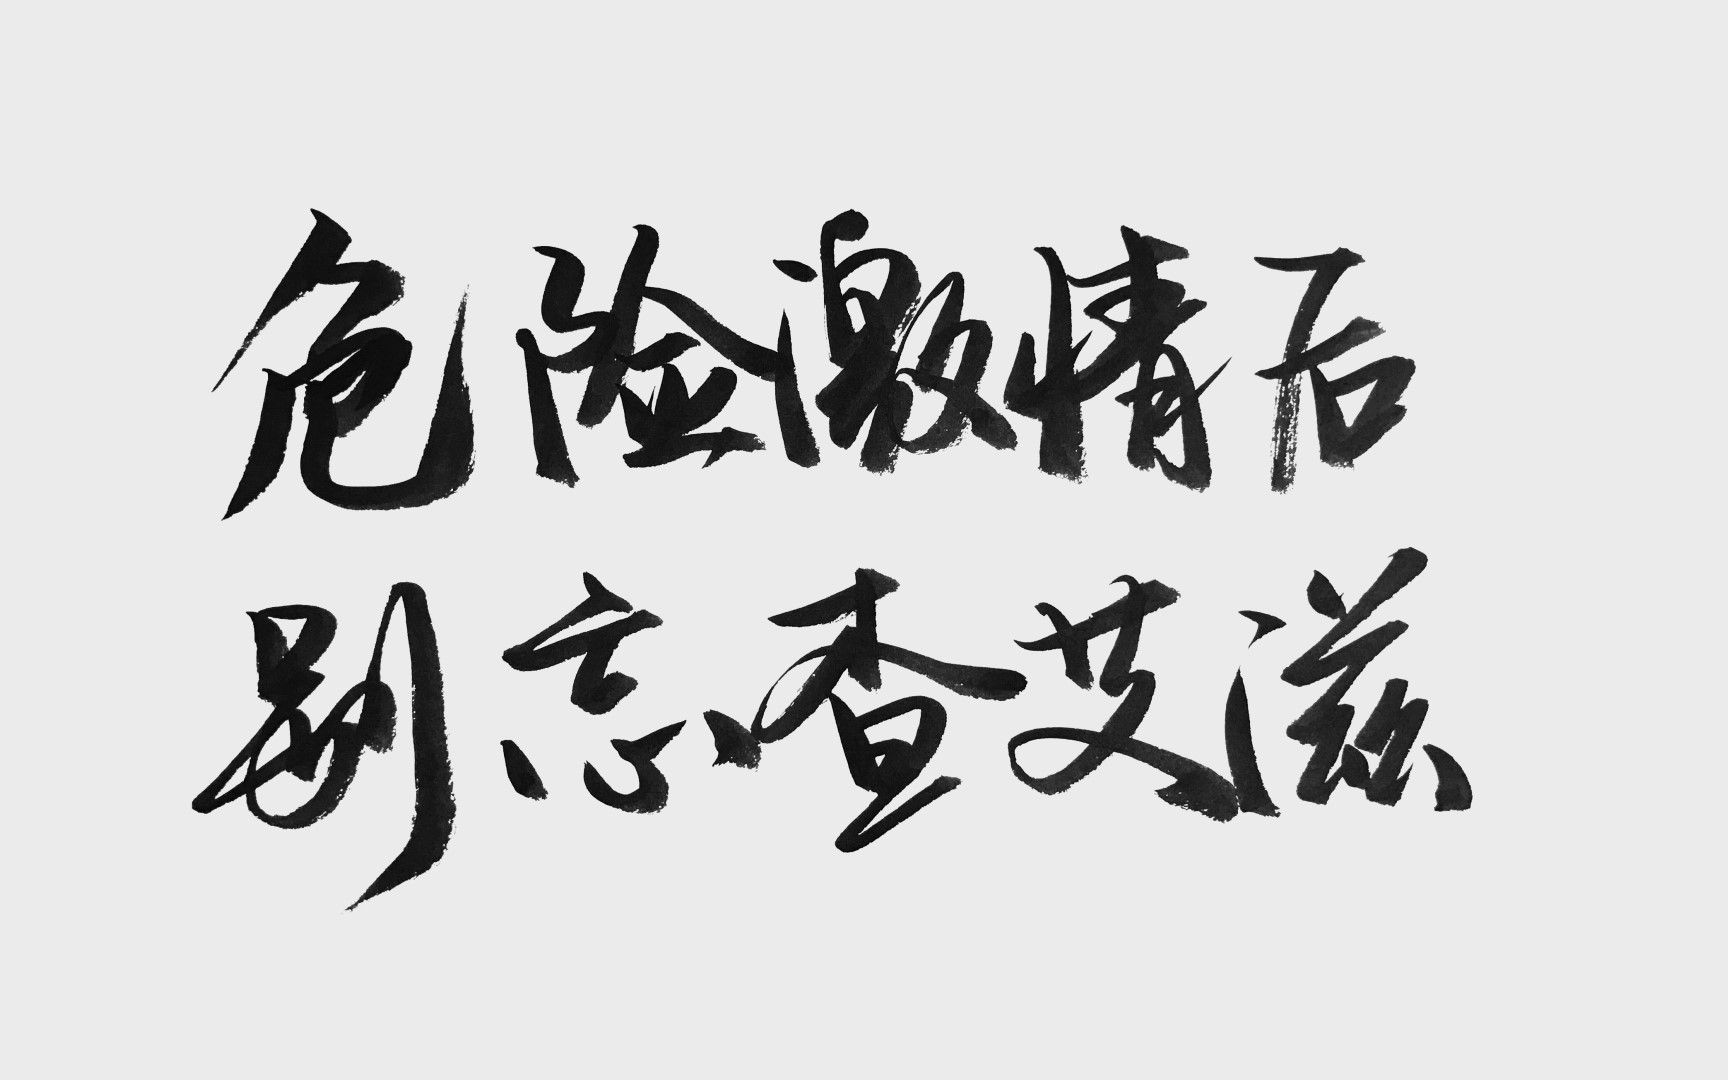 危险激情后
别忘查艾滋